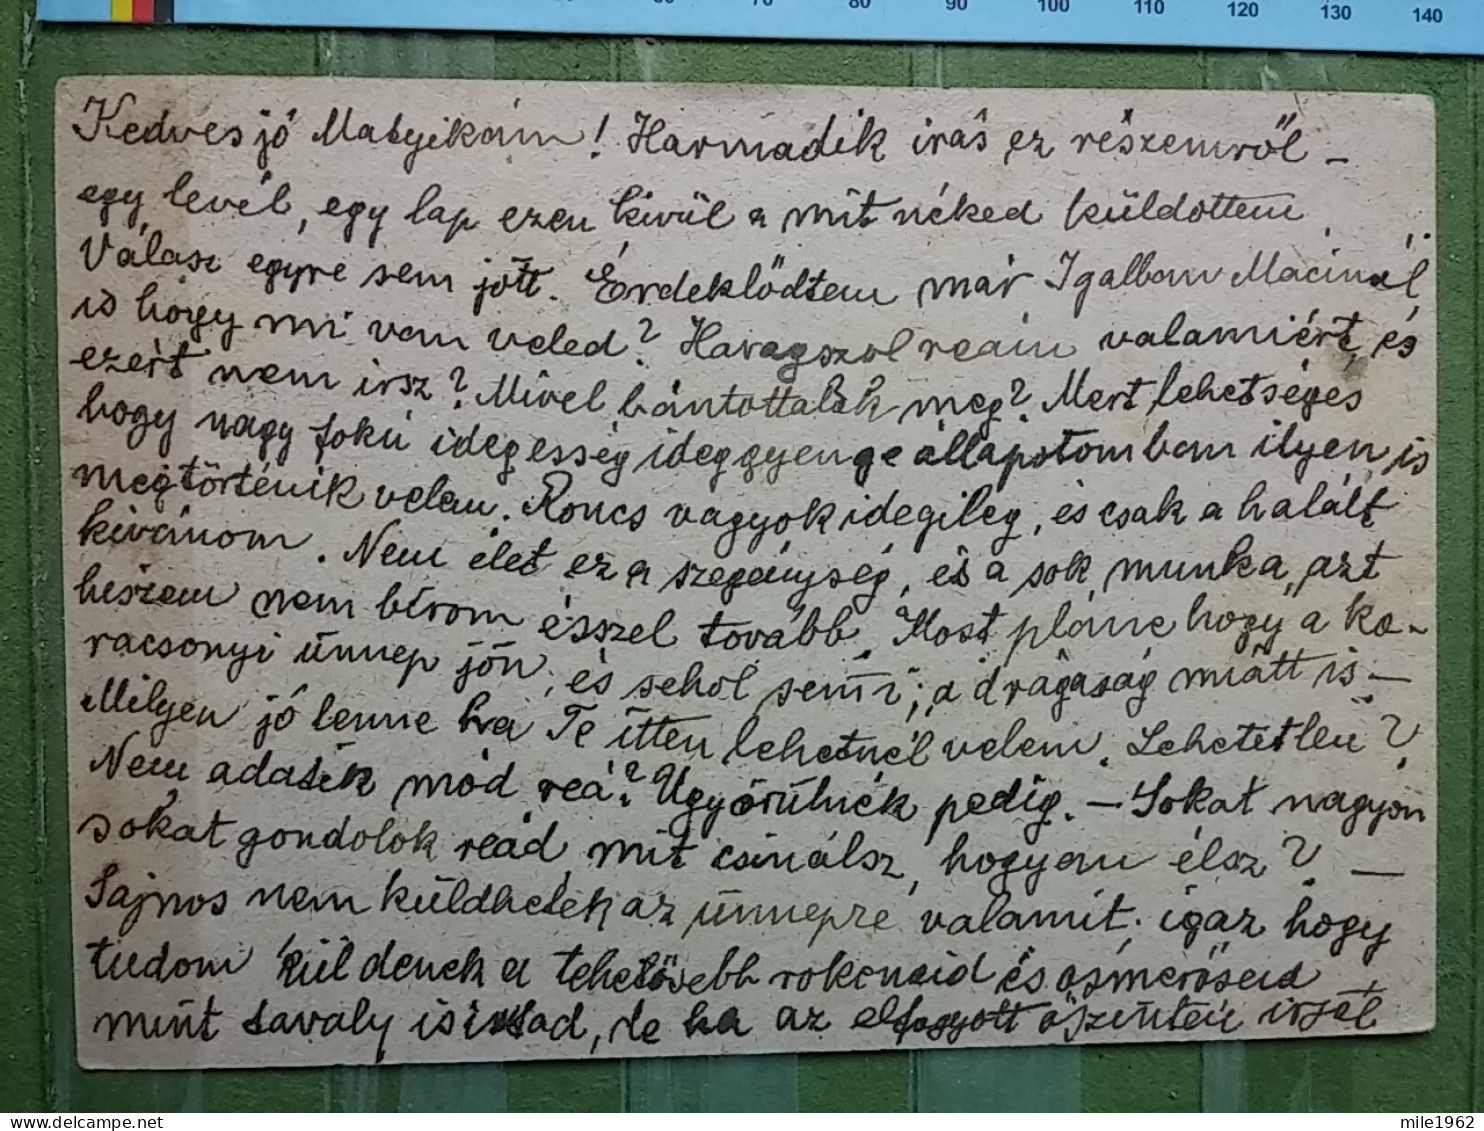 80 90 100 110 120 130 140
Kedves jó Matyikám! Harmadik irás ez részemről –
egy levél, egy lap ezen kivül a mit néked küldöttem
Válasz egyre sem jött. Érdeklődtem már Igalban Macinál
is hogy mi van veled? Haragszol reám valamiért, és
ezért nem irsz? Mivel bántottalak meg? Mert lehetséges
hogy nagy fokú idegesség ideggyenge állapotomban ilyen is
megtörténik velem. Roncs vagyok idegileg, és csak a halált
kivánom. Nem élet ez a szegénység, és a sok munka, azt
hiszem nem birom ésszel tovább. Most pláne hogy a ka-
racsonyi ünnep jön, és sehol semmi; a drágaság miatt is –
Milyen jó lenne ha Te itten lehetnél velem. Lehetetlen?
Nem adatik mód reá? Úgy örülnék pedig. – Sokat nagyon
sokat gondolok reád, mit csinálsz, hogyan élsz? —
Sajnos nem küldhetek az ünnepre valamit, igaz hogy
tudom küldenek a tehetősebb rokonaid és ösmerőseid
mint tavaly is, de ha az elfogyott őszintén irjál
mile1962